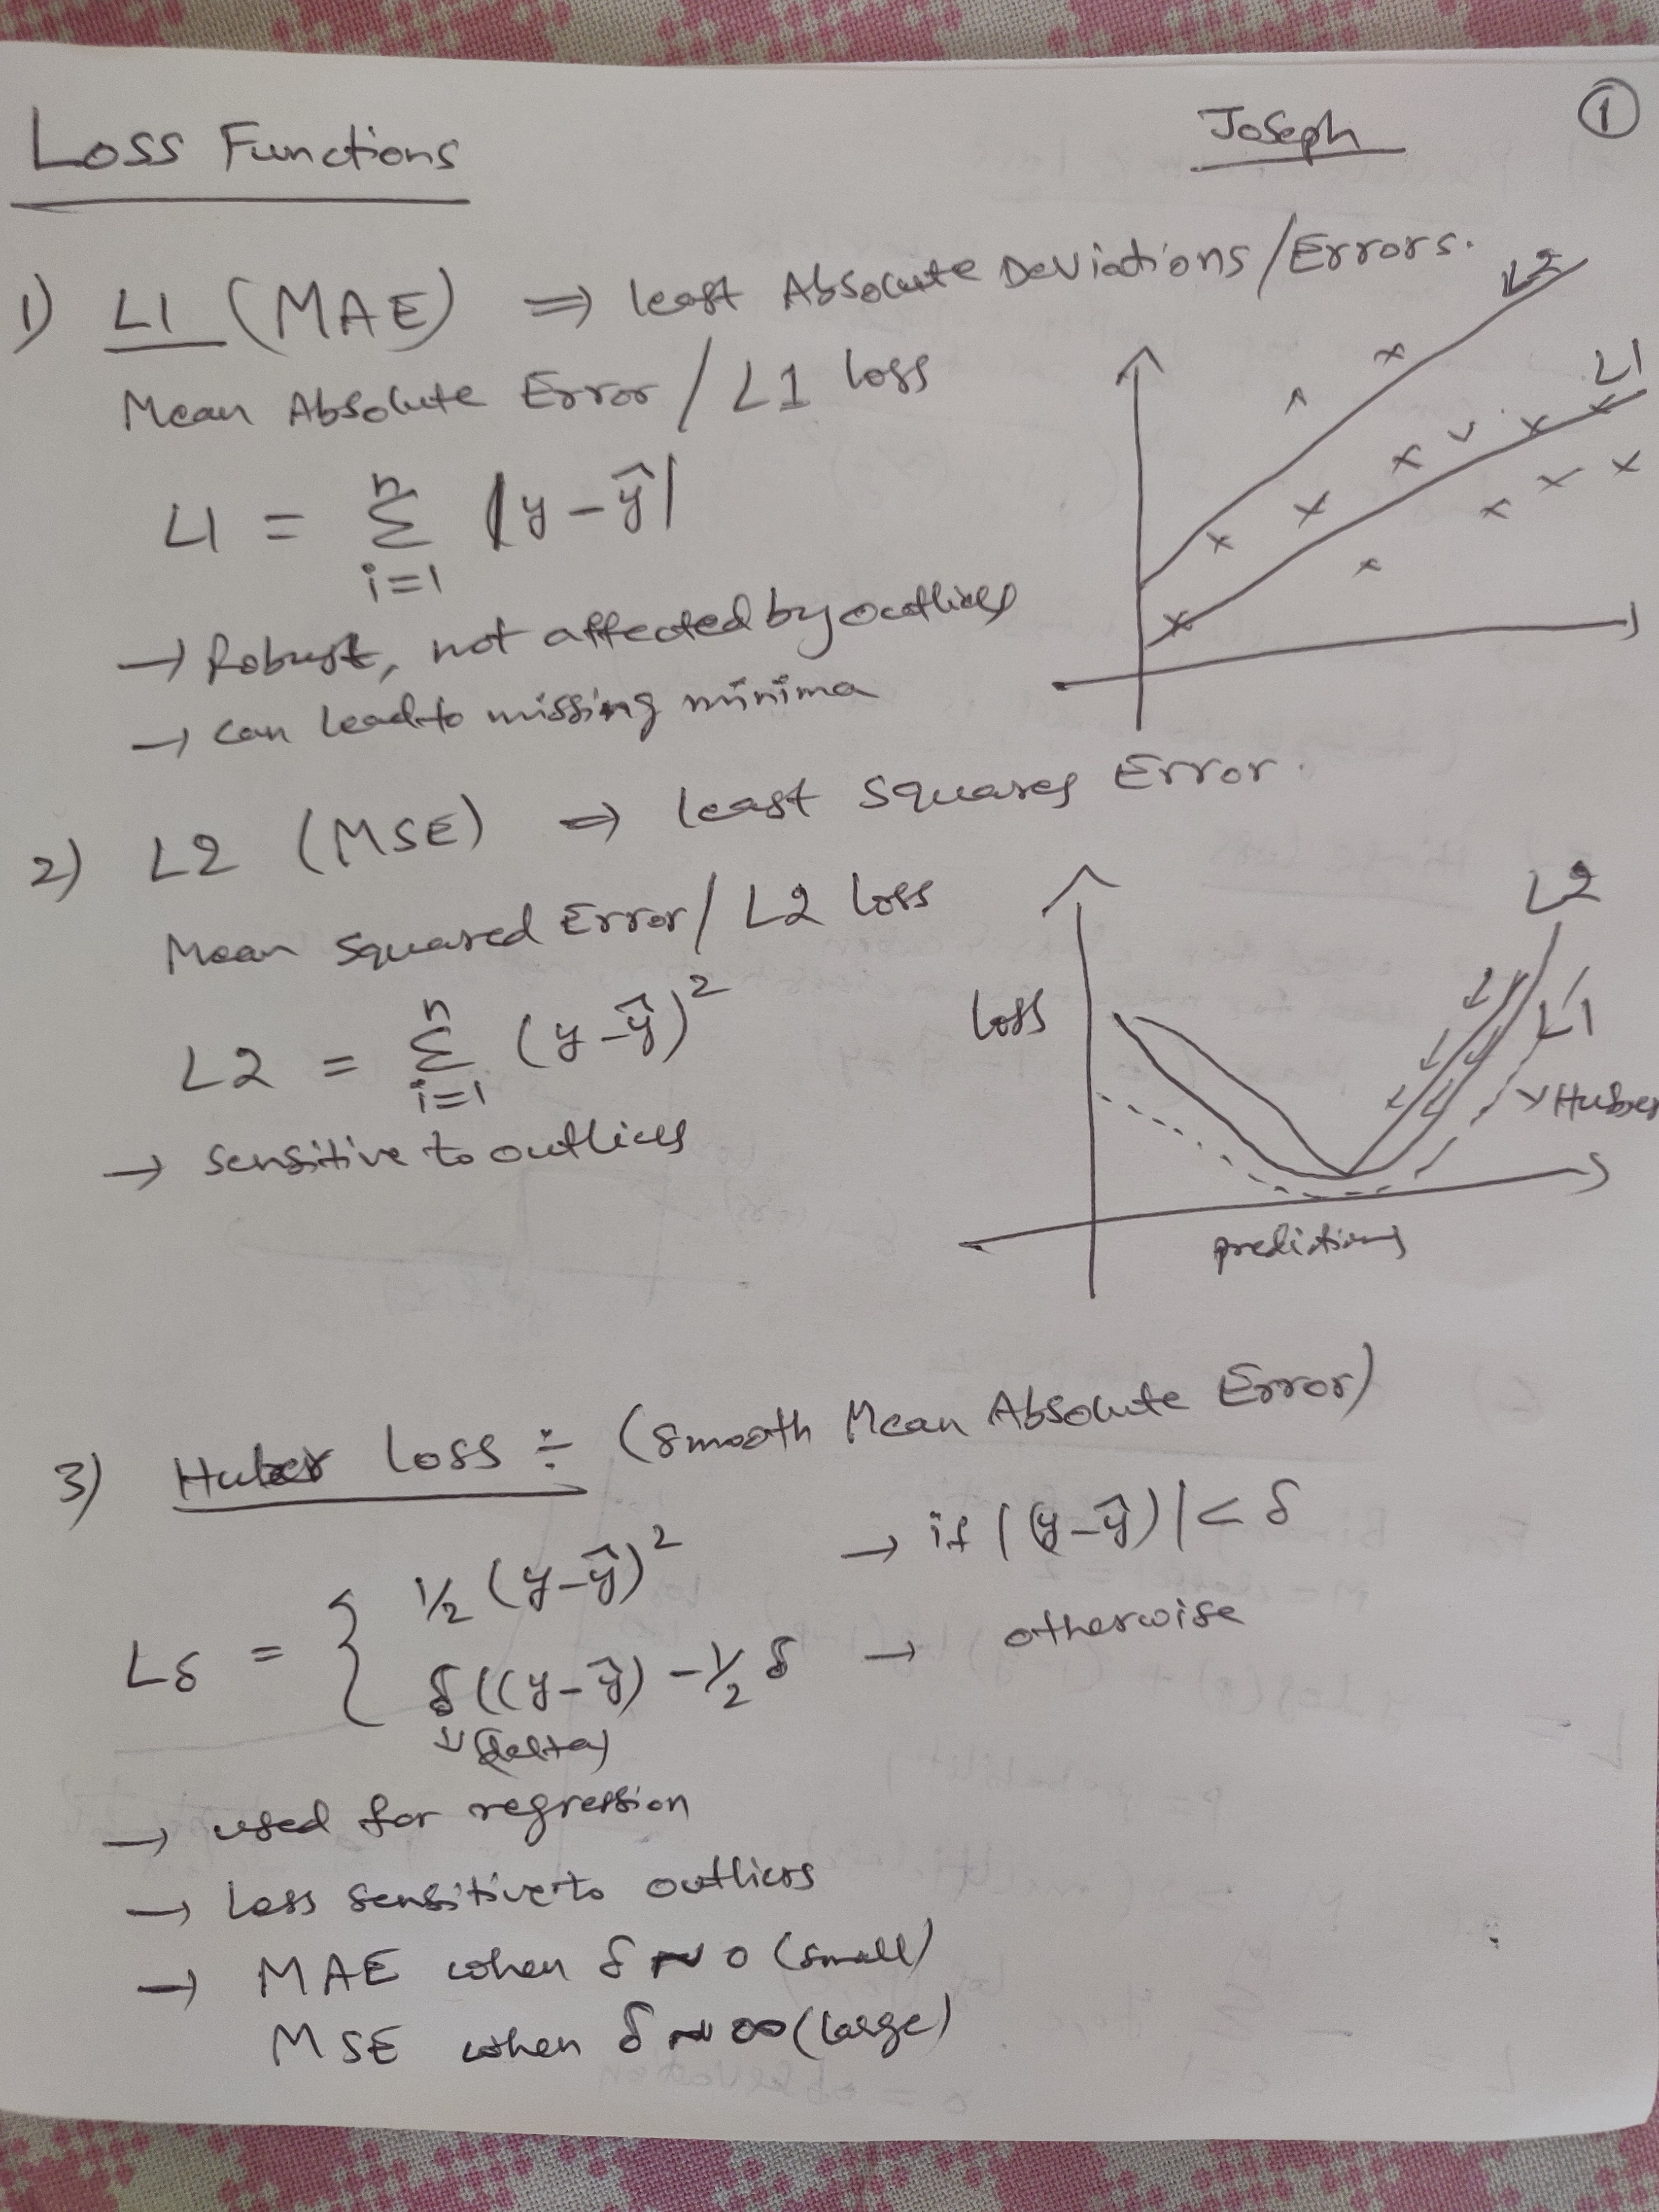 Loss Functions
Joseph
1
1) L1 (MAE) ⇒ least Absolute Deviations/Errors.
Mean Absolute Error / L1 loss
L1 = Σ_{i=1}^{n} |y - ŷ|
→ Robust, not affected by outliers
→ can lead to missing minima
L2
L1
2) L2 (MSE) ⇒ least Squares Error.
Mean Squared Error / L2 loss
L2 = Σ_{i=1}^{n} (y - ŷ)²
→ sensitive to outliers
Loss
L2
L1
Huber
predictions
3) Huber Loss ÷ (Smooth Mean Absolute Error)
Lδ = { 1/2 (y - ŷ)² → if |(y - ŷ)| < δ
δ((y - ŷ) - 1/2 δ → otherwise
(delta)
→ used for regression
→ Less sensitive to outliers
→ MAE when δ ~ 0 (small)
MSE when δ ~ ∞ (large)